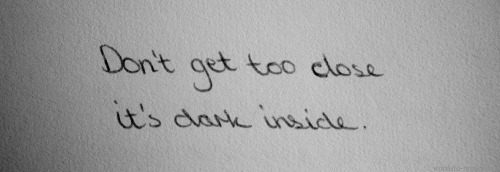 Don't get too close
it's dark inside.